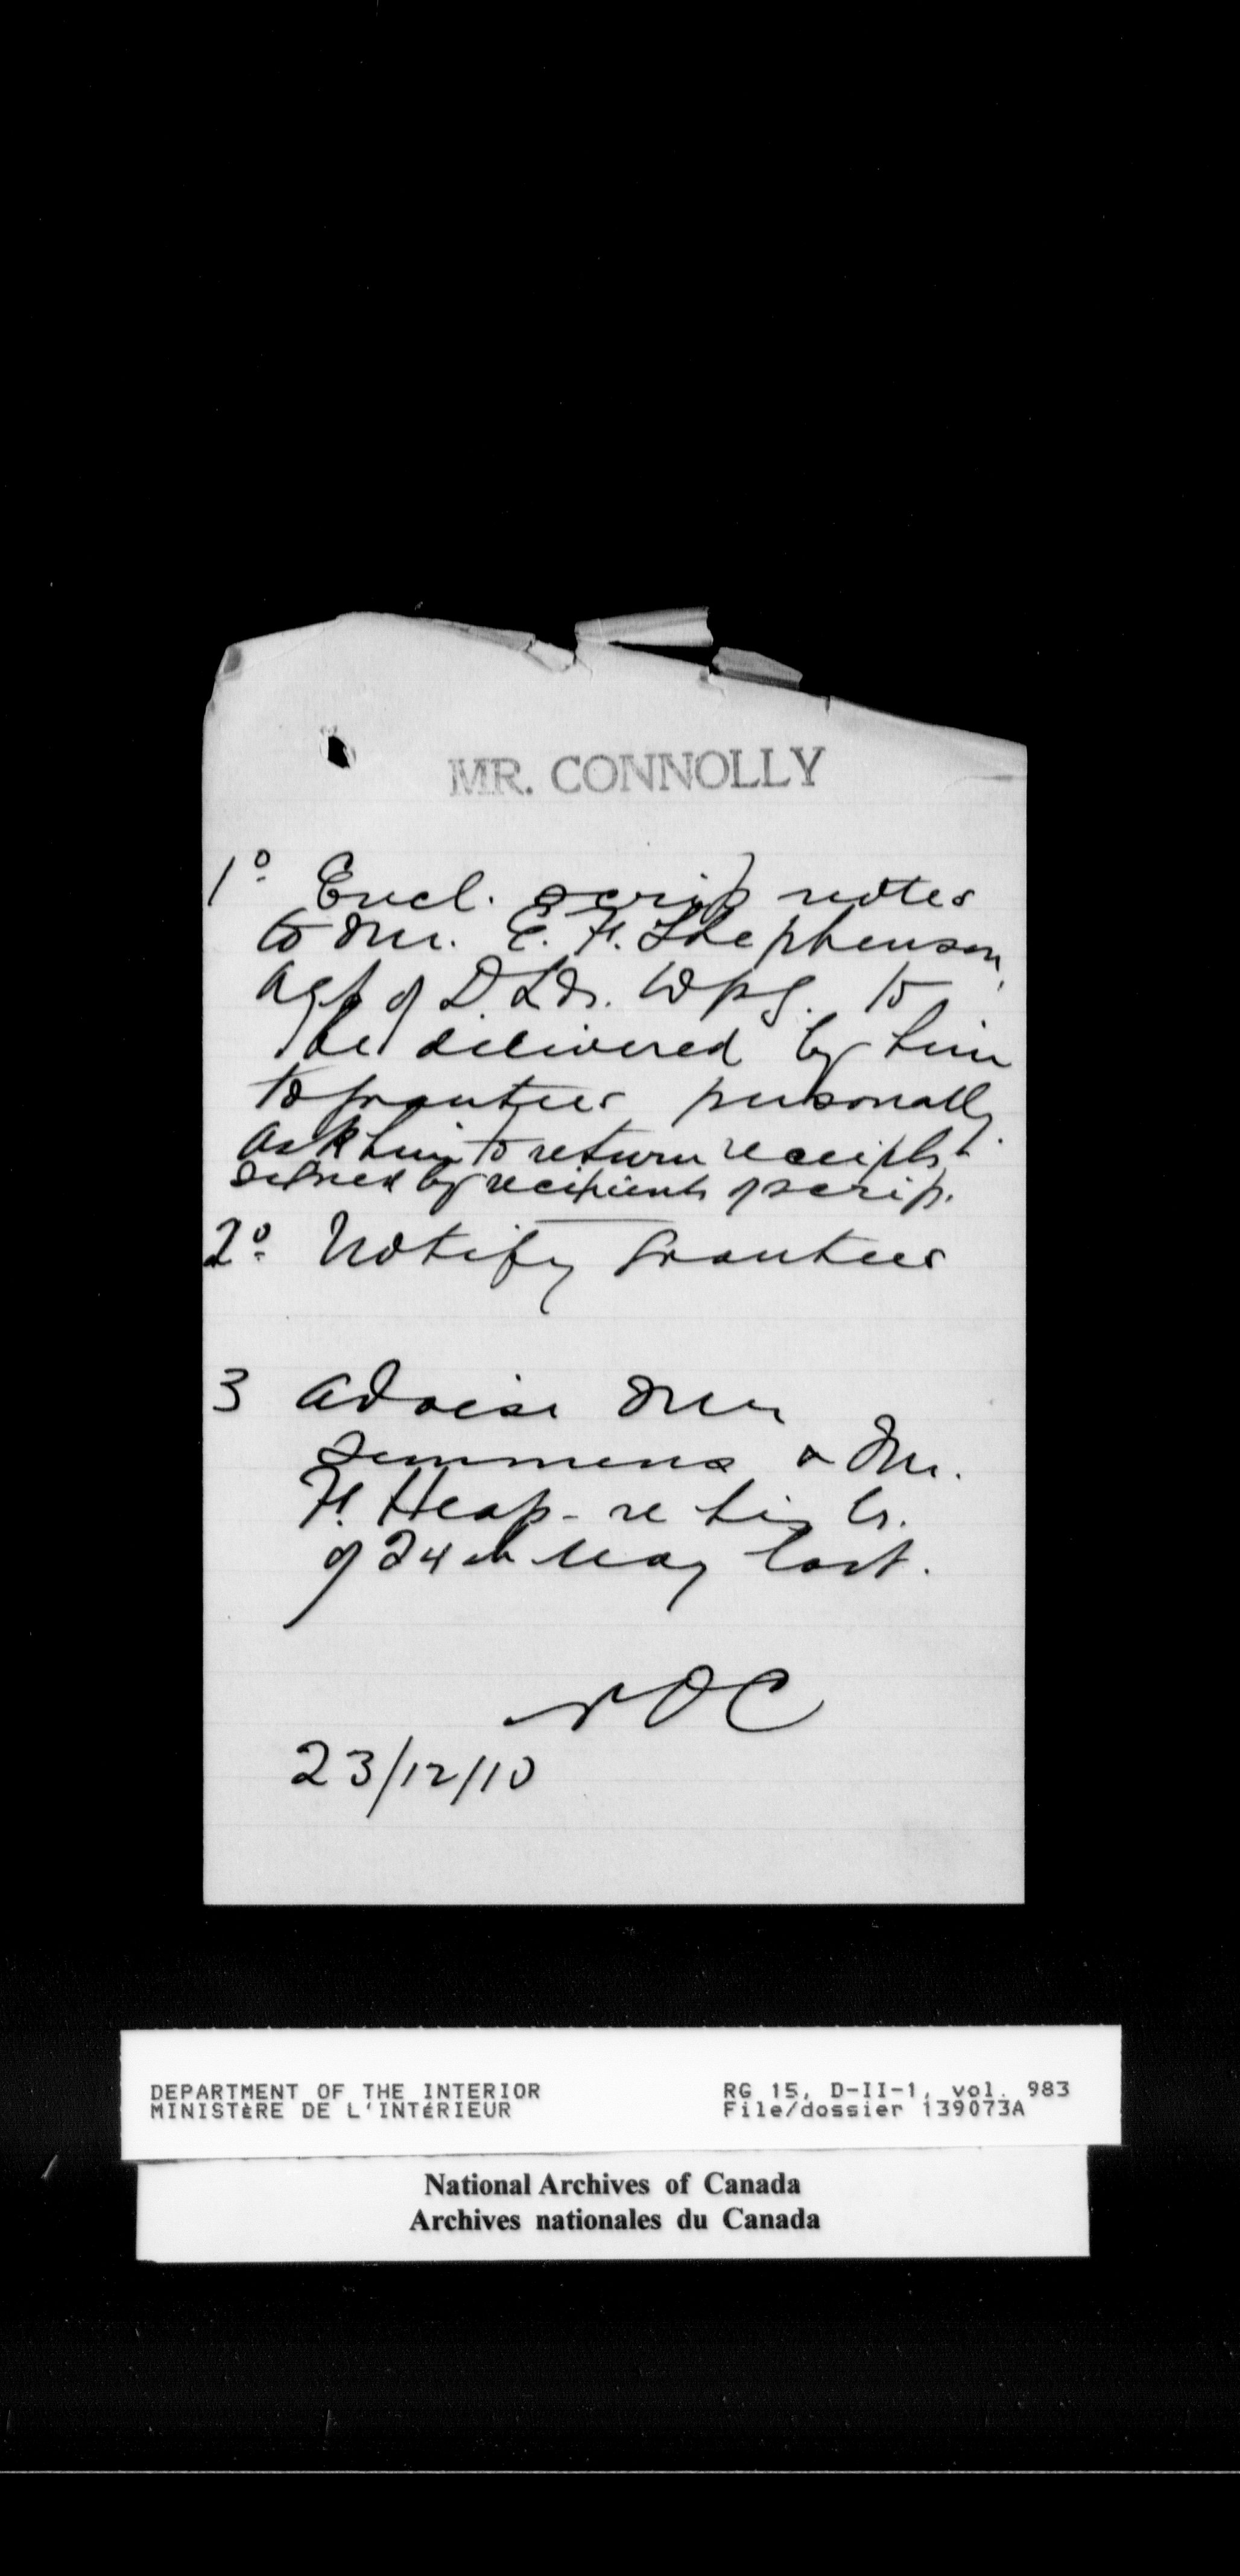 MR. CONNOLLY
1º Encl. scrip notes
to Mr. E. F. Stephenson,
Agt of D. Lds. Wpg. to
be delivered by him
to grantees personally.
Ask him to return receipts
signed by recipients of scrip.
2º Notify Grantees
3 Advise Mr
Semmens & Mr.
F. Heap - re his lr.
of 24th May last.
NOC
23/12/10
DEPARTMENT OF THE INTERIOR
MINISTÈRE DE L'INTÉRIEUR
RG 15, D-II-1, vol. 983
File/dossier 139073A
National Archives of Canada
Archives nationales du Canada